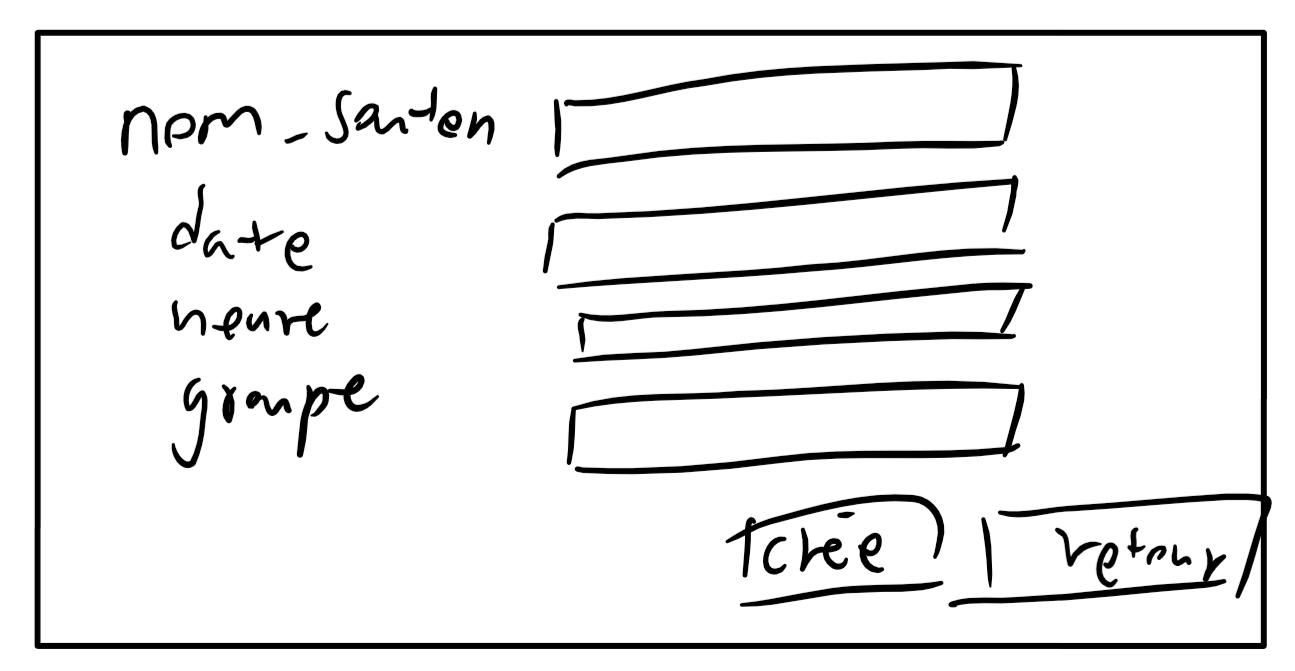 nom_santen
date
heure
groupe
crée retour